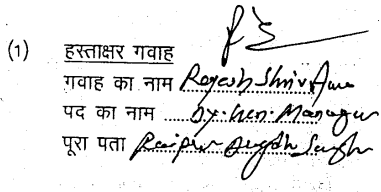 (1) हस्ताक्षर गवाह
गवाह का नाम Rajesh Shriv
पद का नाम .....Dy. Gen. Manager
पूरा पता Raipur Dugdh Sangh